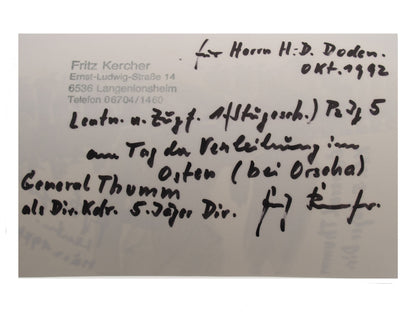 für Herrn H.D. Doden.
Okt. 1992
Fritz Kercher
Ernst-Ludwig-Straße 14
6536 Langenlonsheim
Telefon 06704/1460
Leutn. u. Zugf. 1/(Stugesch.) Pz Jg 5
am Tag der Verleihung im
Osten (bei Orscha)
General Thumm
als Div. Kdr. 5. Jäger Div.